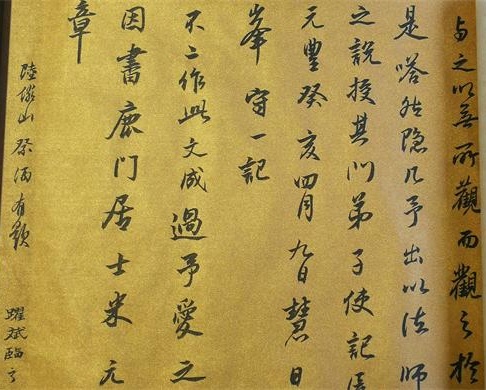 与之以無所觀而觀之於
是嗒然隐几予出以法師
之說授其门弟子使記焉
元豐癸亥四月九日慧日
峯守一記
不二作此文成過予愛之
因書鹿门居士米元
章
陸儼山祭酒有
躍斌臨